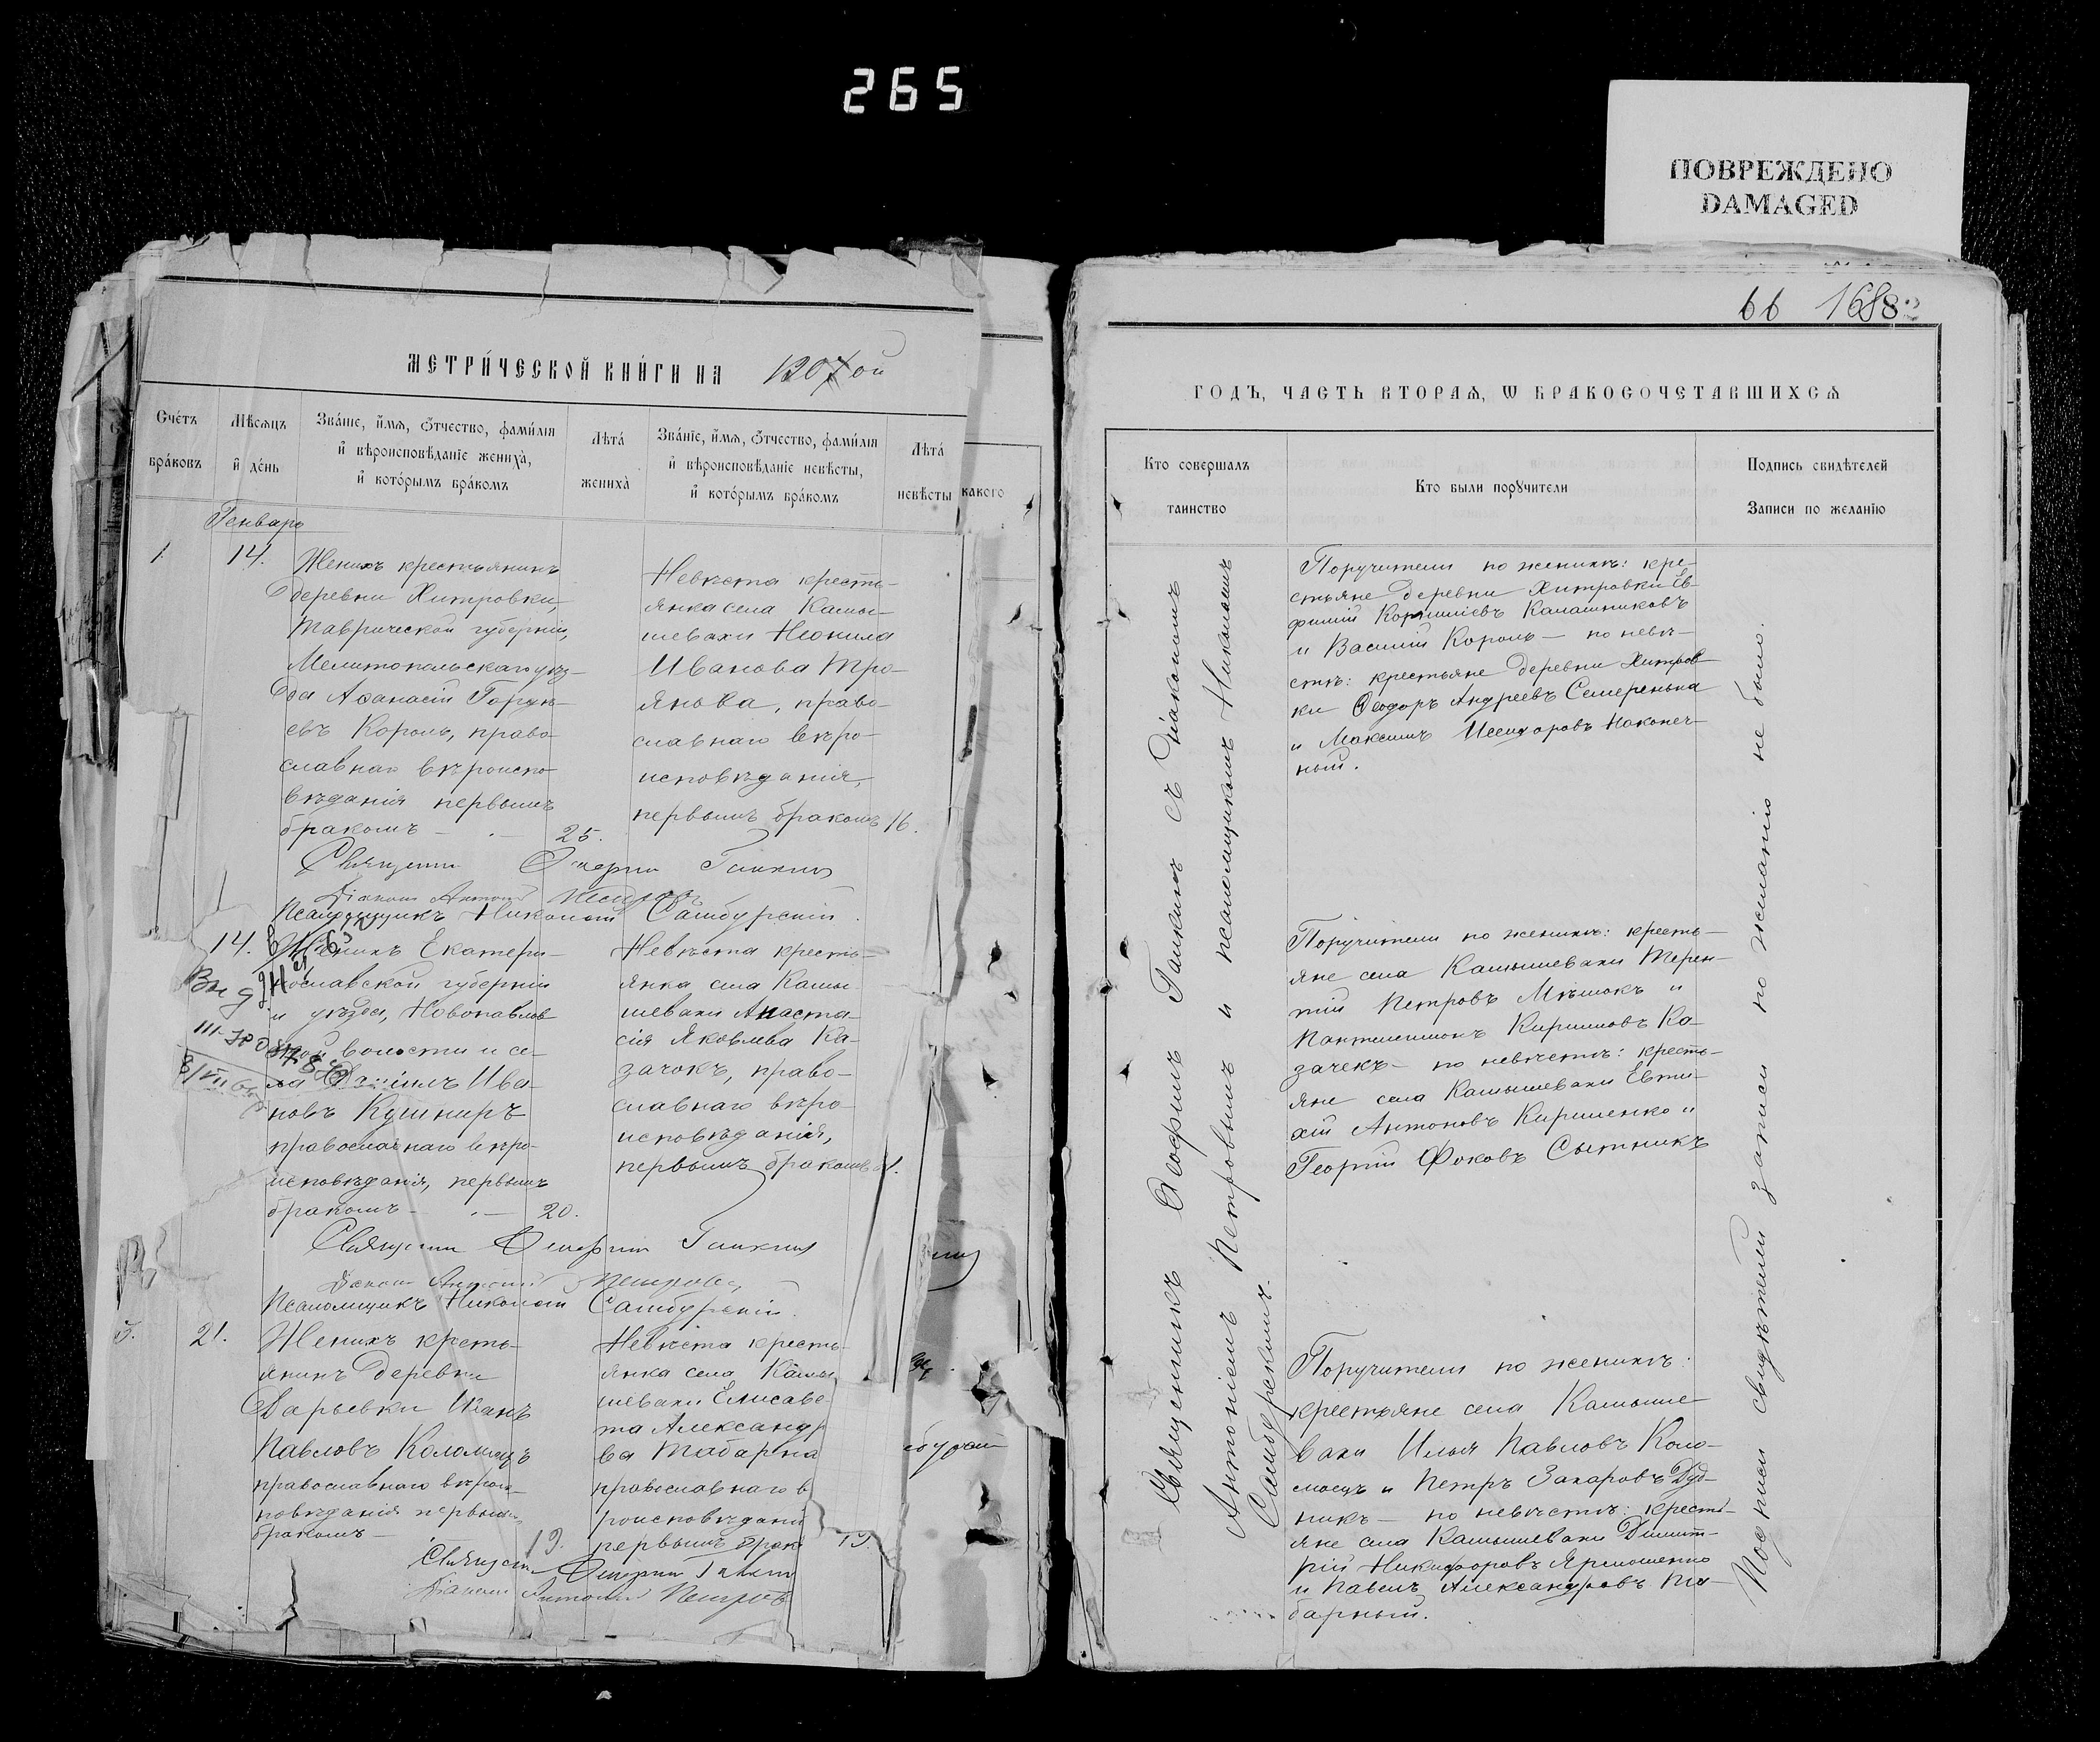 265
ПОВРЕЖДЕНО
DAMAGED
МЕТРИ́ЧЕСКОЙ КНИ́ГИ НА 1907 ой
Счéтъ
брáковъ
Мѣсяцъ
и҆ дéнь
Звáніе, и҆́мя, ѻ҆́тчество, фами́лія
и҆ вѣроисповѣ́даніе женихà,
и҆ котóрымъ брáкомъ
Лѣтá
женихà
Звáніе, и҆́мя, ѻ҆́тчество, фами́лія
и҆ вѣроисповѣ́даніе невѣ́сты,
и҆ котóрымъ брáкомъ
Лѣтá
невѣ́сты
какого
Генварь
1
14.
Женихъ крестьянинъ
деревни Хитровки,
Таврической губерніи,
Мелитопольскаго уѣз-
да Аѳанасій
евъ Король, право-
славнаго вѣроиспо-
вѣданія первымъ
бракомъ —
25.
Невѣста кресть-
янка села Камы-
шевахи Неонила
Иванова Тро-
янова, право-
славнаго вѣро-
исповѣданія,
первымъ бракомъ
16.
Священникъ Ѳеофилъ Галкинъ
Діаконъ Антоній Петровъ
Псаломщикъ Николай Самбурскій.
14.
Женихъ Екатери-
нославской губерніи
и уѣзда, Новопавлов-
ской волости и се-
ла Даніилъ Ива-
новъ Кушниръ
православнаго вѣро-
исповѣданія, первымъ
бракомъ —
20.
Невѣста кресть-
янка села Камы-
шевахи Анаста-
сія Яковлева Ка-
зачокъ, право-
славнаго вѣро-
исповѣданія,
первымъ бракомъ
Священникъ Ѳеофилъ Галкинъ
Діаконъ Антоній Петровъ
Псаломщикъ Николай Самбурскій.
3.
21.
Женихъ кресть-
янинъ деревни
Дарьевки Иванъ
Павловъ Коломоецъ
православнаго вѣроис-
повѣданія первымъ
бракомъ —
19.
Невѣста кресть-
янка села Камы-
шевахи Елисаве-
та Александр
ва Табарна
православнаго в
роисповѣдані
первымъ брак
19.
Священникъ Ѳеофилъ Галкинъ
Діаконъ Антоній Петровъ
66 1688
ГОДЪ, ЧАСТЬ ВТОРАЯ, Ѡ БРАКОСОЧЕТАВШИХСЯ
Кто совершалъ
таинство
Кто были порꙋчители
Подпись свидѣтелей
Записи по желанію
Священникъ Ѳеофилъ Галкинъ съ діакономъ
Антоніемъ Петровымъ и псаломщикомъ Николаемъ
Самбурскимъ.
Поручители по женихѣ: кре-
стьяне деревни Хитровки Ев-
фимій Корниліевъ Калашниковъ
и Василій Король — по невѣ-
стѣ: крестьяне деревни Хитров-
ки Ѳеодоръ Андреевъ Семеренька
и Максимъ Исидоровъ Наконеч-
ный.
Поручители по женихѣ: кресть-
яне села Камышевахи Терен-
тій Петровъ Мѣшокъ и
Пантелеимонъ Кирилловъ Ка-
зачекъ — по невѣстѣ: кресть-
яне села Камышевахи Евти-
хій Антоновъ Кириленко и
Георгій Фоковъ Сытникъ
Поручители по женихѣ:
крестьяне села Камыше-
вахи Илья Павловъ Коло-
моецъ и Петръ Захаровъ Дуд-
никъ — по невѣстѣ: кресть-
яне села Камышевахи Димит-
рій Никифоровъ Ярмошенко
и Павелъ Александровъ Та-
барный.
Подписи свидѣтелей записи по желанію не было.